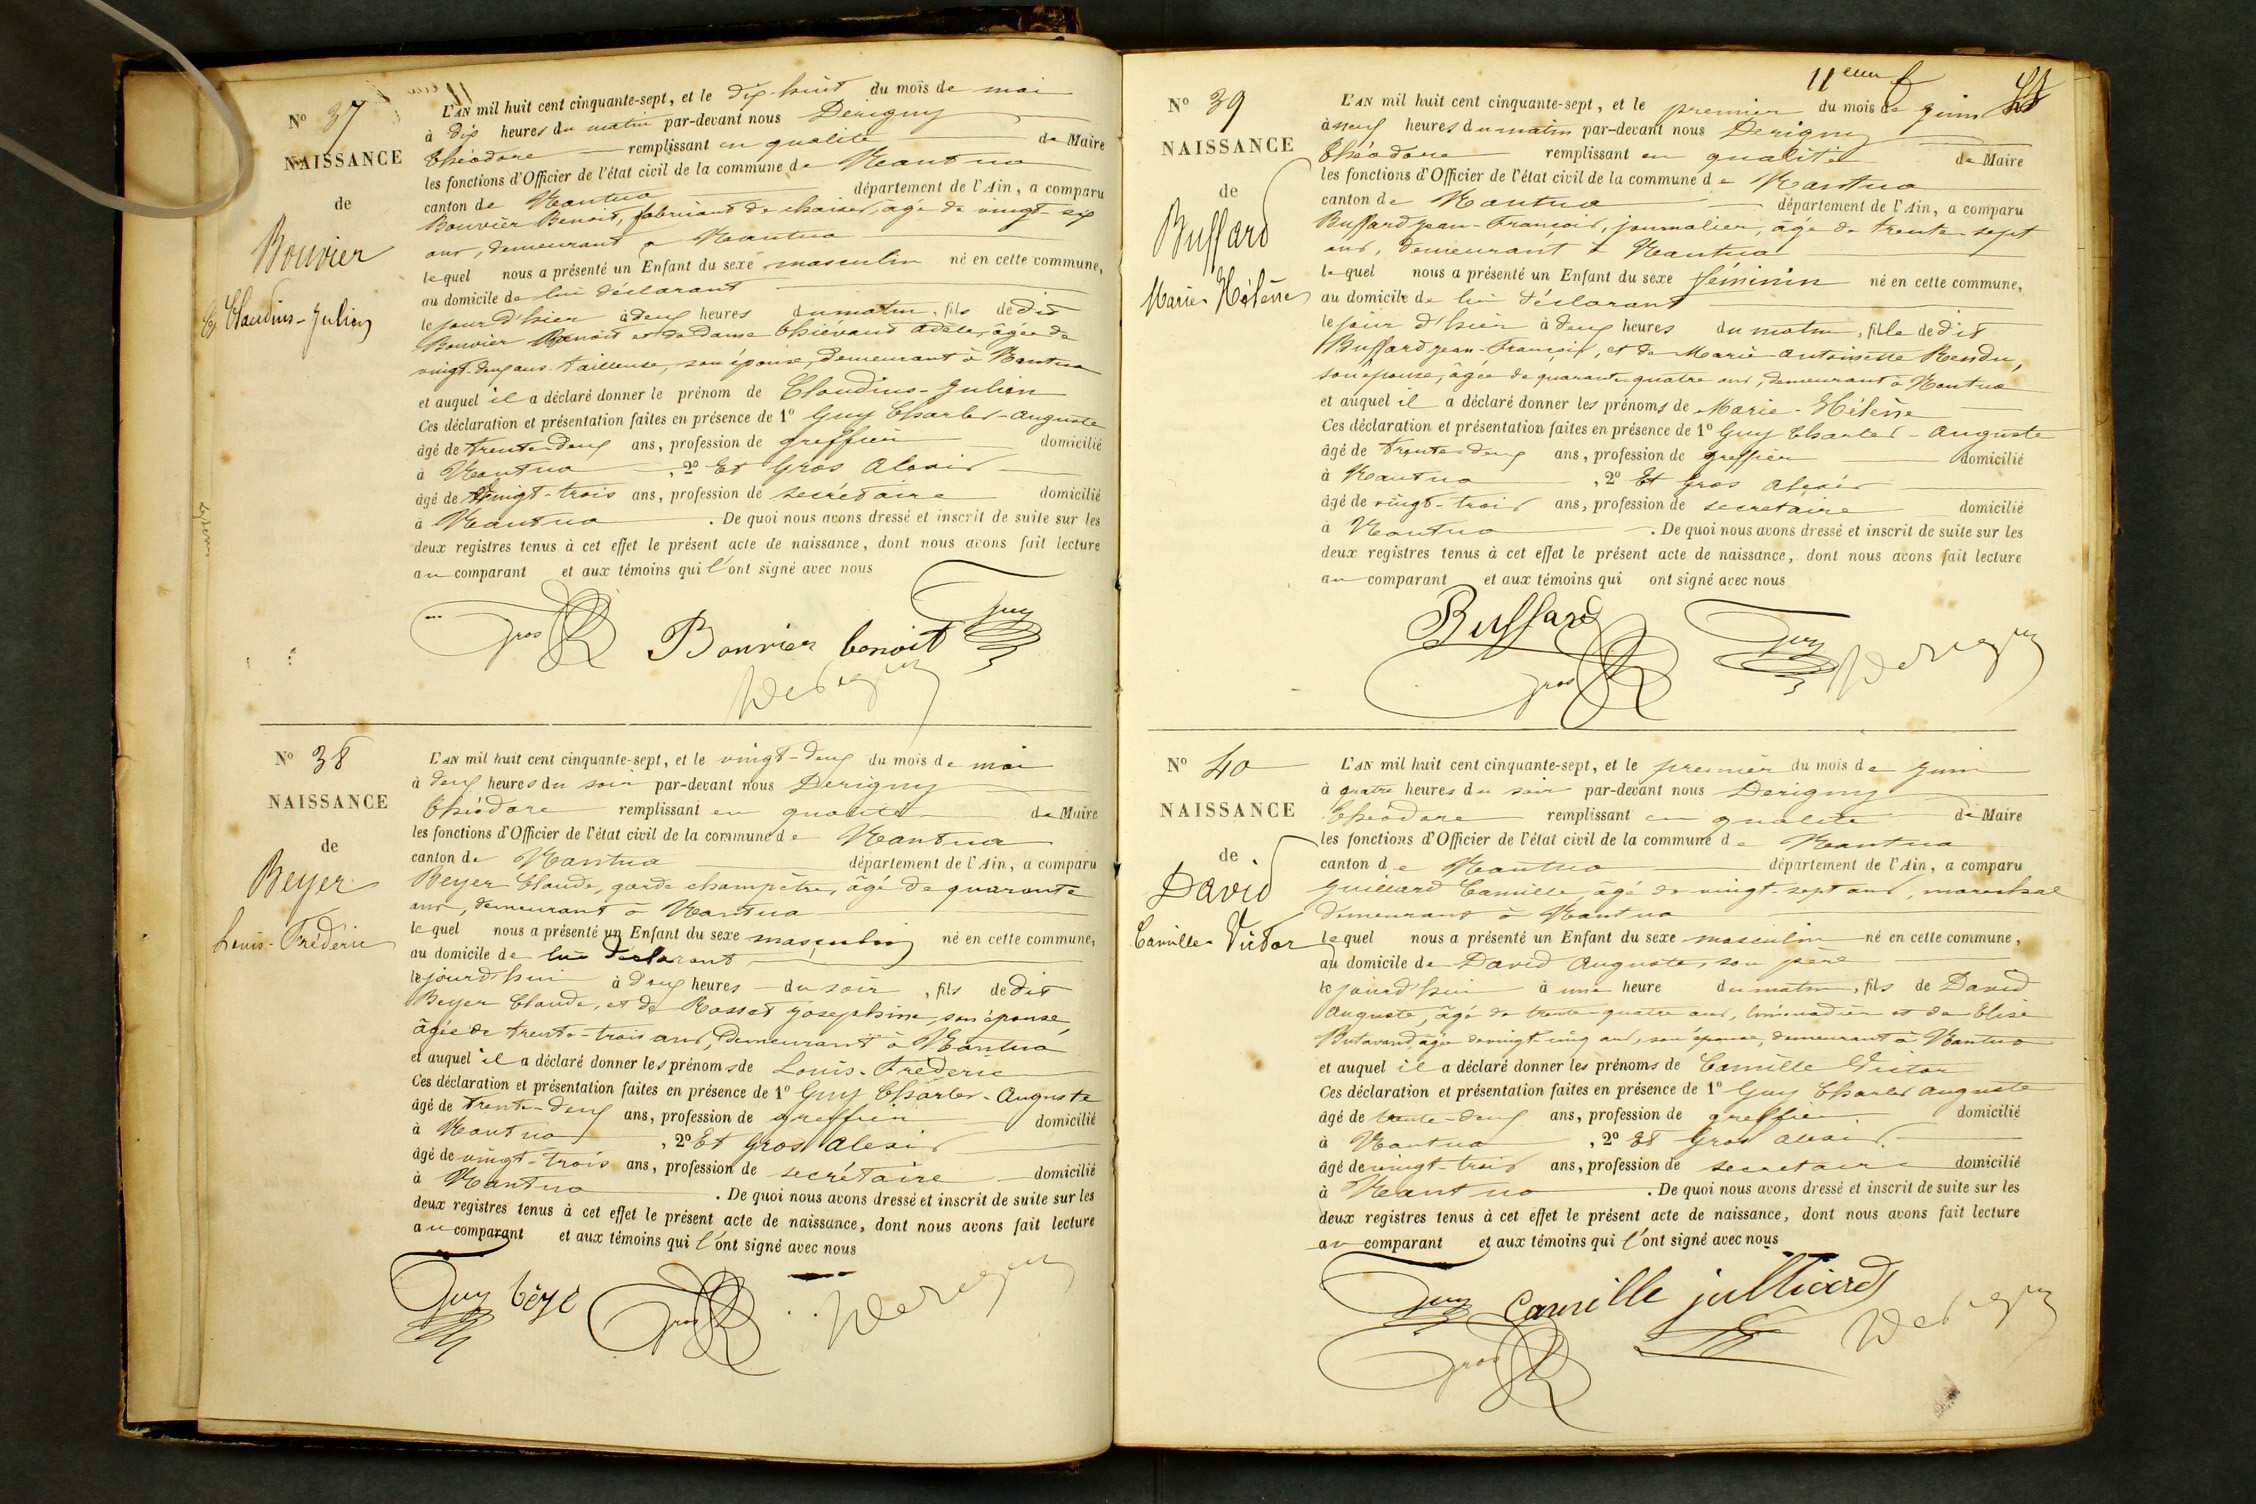 N° 37
NAISSANCE
de
Bouvier
Claudius-Julien
L'AN mil huit cent cinquante-sept, et le dix-huit du mois de mai
à dix heures du matin par-devant nous Derigny
Théodore remplissant en qualité de Maire
les fonctions d'Officier de l'état civil de la commune de Nantua
canton de Nantua département de l'Ain, a comparu
Bouvier Benoit, fabricant de chaises, âgé de vingt-six
ans, demeurant à Nantua
lequel nous a présenté un Enfant du sexe masculin né en cette commune,
au domicile de lui déclarant
le jour d'hier à deux heures du matin, fils de dit
Bouvier Benoit et de Dame Thiévant Adèle, âgée de
vingt-deux ans tailleuse, son épouse, demeurant à Nantua
et auquel il a déclaré donner le prénom de Claudius-Julien
Ces déclaration et présentation faites en présence de 1° Guy Charles-Auguste
âgé de trente-deux ans, profession de greffier domicilié
à Nantua, 2° Et Gros Alexis
âgé de vingt-trois ans, profession de secrétaire domicilié
à Nantua. De quoi nous avons dressé et inscrit de suite sur les
deux registres tenus à cet effet le présent acte de naissance, dont nous avons fait lecture
au comparant et aux témoins qui l'ont signé avec nous
Gros Bouvier benoit Guy
Derigny
N° 38
NAISSANCE
de
Beyer
Louis-Frédéric
L'AN mil huit cent cinquante-sept, et le vingt-deux du mois de mai
à deux heures du soir par-devant nous Derigny
Théodore remplissant en qualité de Maire
les fonctions d'Officier de l'état civil de la commune de Nantua
canton de Nantua département de l'Ain, a comparu
Beyer Claude, garde champêtre, âgé de quarante
ans, demeurant à Nantua
lequel nous a présenté un Enfant du sexe masculin né en cette commune,
au domicile de lui déclarant
lejourd'hui à deux heures du soir, fils de dit
Beyer Claude, et de Rosset Josephine, son épouse,
âgée de trente-trois ans, Demeurant à Nantua
et auquel il a déclaré donner les prénoms de Louis-Frédéric
Ces déclaration et présentation faites en présence de 1° Guy Charles-Auguste
âgé de trente-deux ans, profession de greffier domicilié
à Nantua, 2° Et Gros Alexis
âgé de vingt-trois ans, profession de secrétaire domicilié
à Nantua. De quoi nous avons dressé et inscrit de suite sur les
deux registres tenus à cet effet le présent acte de naissance, dont nous avons fait lecture
au comparant et aux témoins qui l'ont signé avec nous
Guy bèyé Gros Derigny
11eme f
N° 39
NAISSANCE
de
Buffard
Marie-Hélène
L'AN mil huit cent cinquante-sept, et le premier du mois de juin
à neuf heures du matin par-devant nous Derigny
Théodore remplissant en qualité de Maire
les fonctions d'Officier de l'état civil de la commune de Nantua
canton de Nantua département de l'Ain, a comparu
Buffard Jean-François, journalier, âgé de trente-sept
ans, demeurant à Nantua
lequel nous a présenté un Enfant du sexe féminin né en cette commune,
au domicile de lui déclarant
le jour d'hier à deux heures du matin, fille de dit
Buffard jean-François, et de Marie Antoinette Rendu,
son épouse, âgée de quarante quatre ans, demeurant à Nantua
et auquel il a déclaré donner les prénoms de Marie-Hélène
Ces déclaration et présentation faites en présence de 1° Guy Charles-Auguste
âgé de trente-deux ans, profession de greffier domicilié
à Nantua, 2° Et Gros Alexis
âgé de vingt-trois ans, profession de secrétaire domicilié
à Nantua. De quoi nous avons dressé et inscrit de suite sur les
deux registres tenus à cet effet le présent acte de naissance, dont nous avons fait lecture
au comparant et aux témoins qui ont signé avec nous
Buffard Guy Derigny
Gros
N° 40
NAISSANCE
de
David
Camille-Victor
L'AN mil huit cent cinquante-sept, et le premier du mois de juin
à quatre heures du soir par-devant nous Derigny
Théodore remplissant en qualité de Maire
les fonctions d'Officier de l'état civil de la commune de Nantua
canton de Nantua département de l'Ain, a comparu
Juilliard Camille, âgé de vingt-sept ans, marechal
demeurant à Nantua
lequel nous a présenté un Enfant du sexe masculin né en cette commune,
au domicile de David Auguste, son père
lejourd'hui à une heure du matin, fils de David
Auguste, âgé de trente-quatre ans, limonadier et de Elise
Butavand, âgée de vingt cinq ans, son épouse, demeurant à Nantua
et auquel il a déclaré donner les prénoms de Camille Victor
Ces déclaration et présentation faites en présence de 1° Guy Charles Auguste
âgé de trente-deux ans, profession de greffier domicilié
à Nantua, 2° Et Gros Alexis
âgé de vingt-trois ans, profession de secretaire domicilié
à Nantua. De quoi nous avons dressé et inscrit de suite sur les
deux registres tenus à cet effet le présent acte de naissance, dont nous avons fait lecture
au comparant et aux témoins qui l'ont signé avec nous
Guy Camille julliard Derigny
Gros